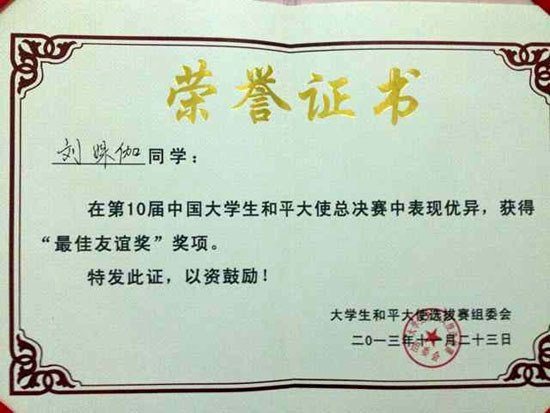 荣誉证书
刘姝伽同学：
在第10届中国大学生和平大使总决赛中表现优异，获得
“最佳友谊奖”奖项。
特发此证，以资鼓励！
大学生和平大使选拔赛组委会
二〇一三年十一月二十三日